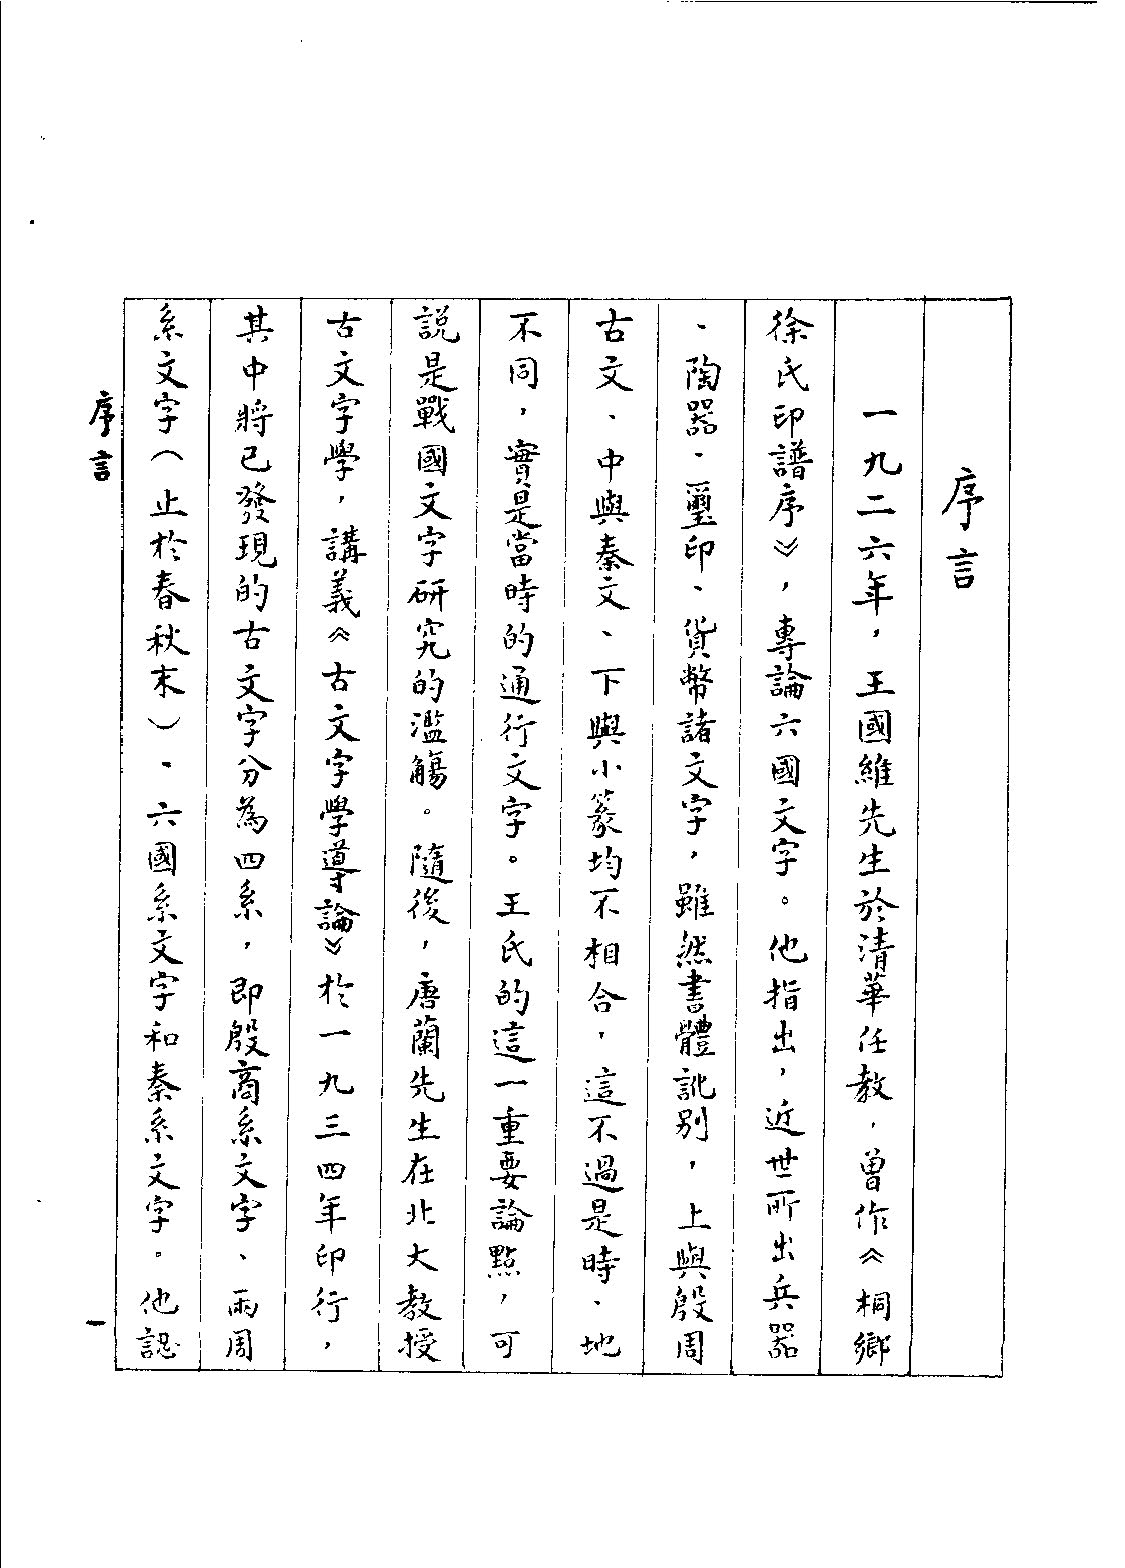 序言
一九二六年，王國維先生於清華任教，曾作《桐鄉
徐氏印譜序》，專論六國文字。他指出，近世所出兵器
、陶器、璽印、貨幣諸文字，雖然書體訛別，上與殷周
古文、中與秦文、下與小篆均不相合，這不過是時、地
不同，實是當時的通行文字。王氏的這一重要論點，可
說是戰國文字研究的濫觴。隨後，唐蘭先生在北大教授
古文字學，講義《古文字學導論》於一九三四年印行，
其中將已發現的古文字分為四系，即殷商系文字、兩周
系文字（止於春秋末）、六國系文字和秦系文字。他認
序言
一